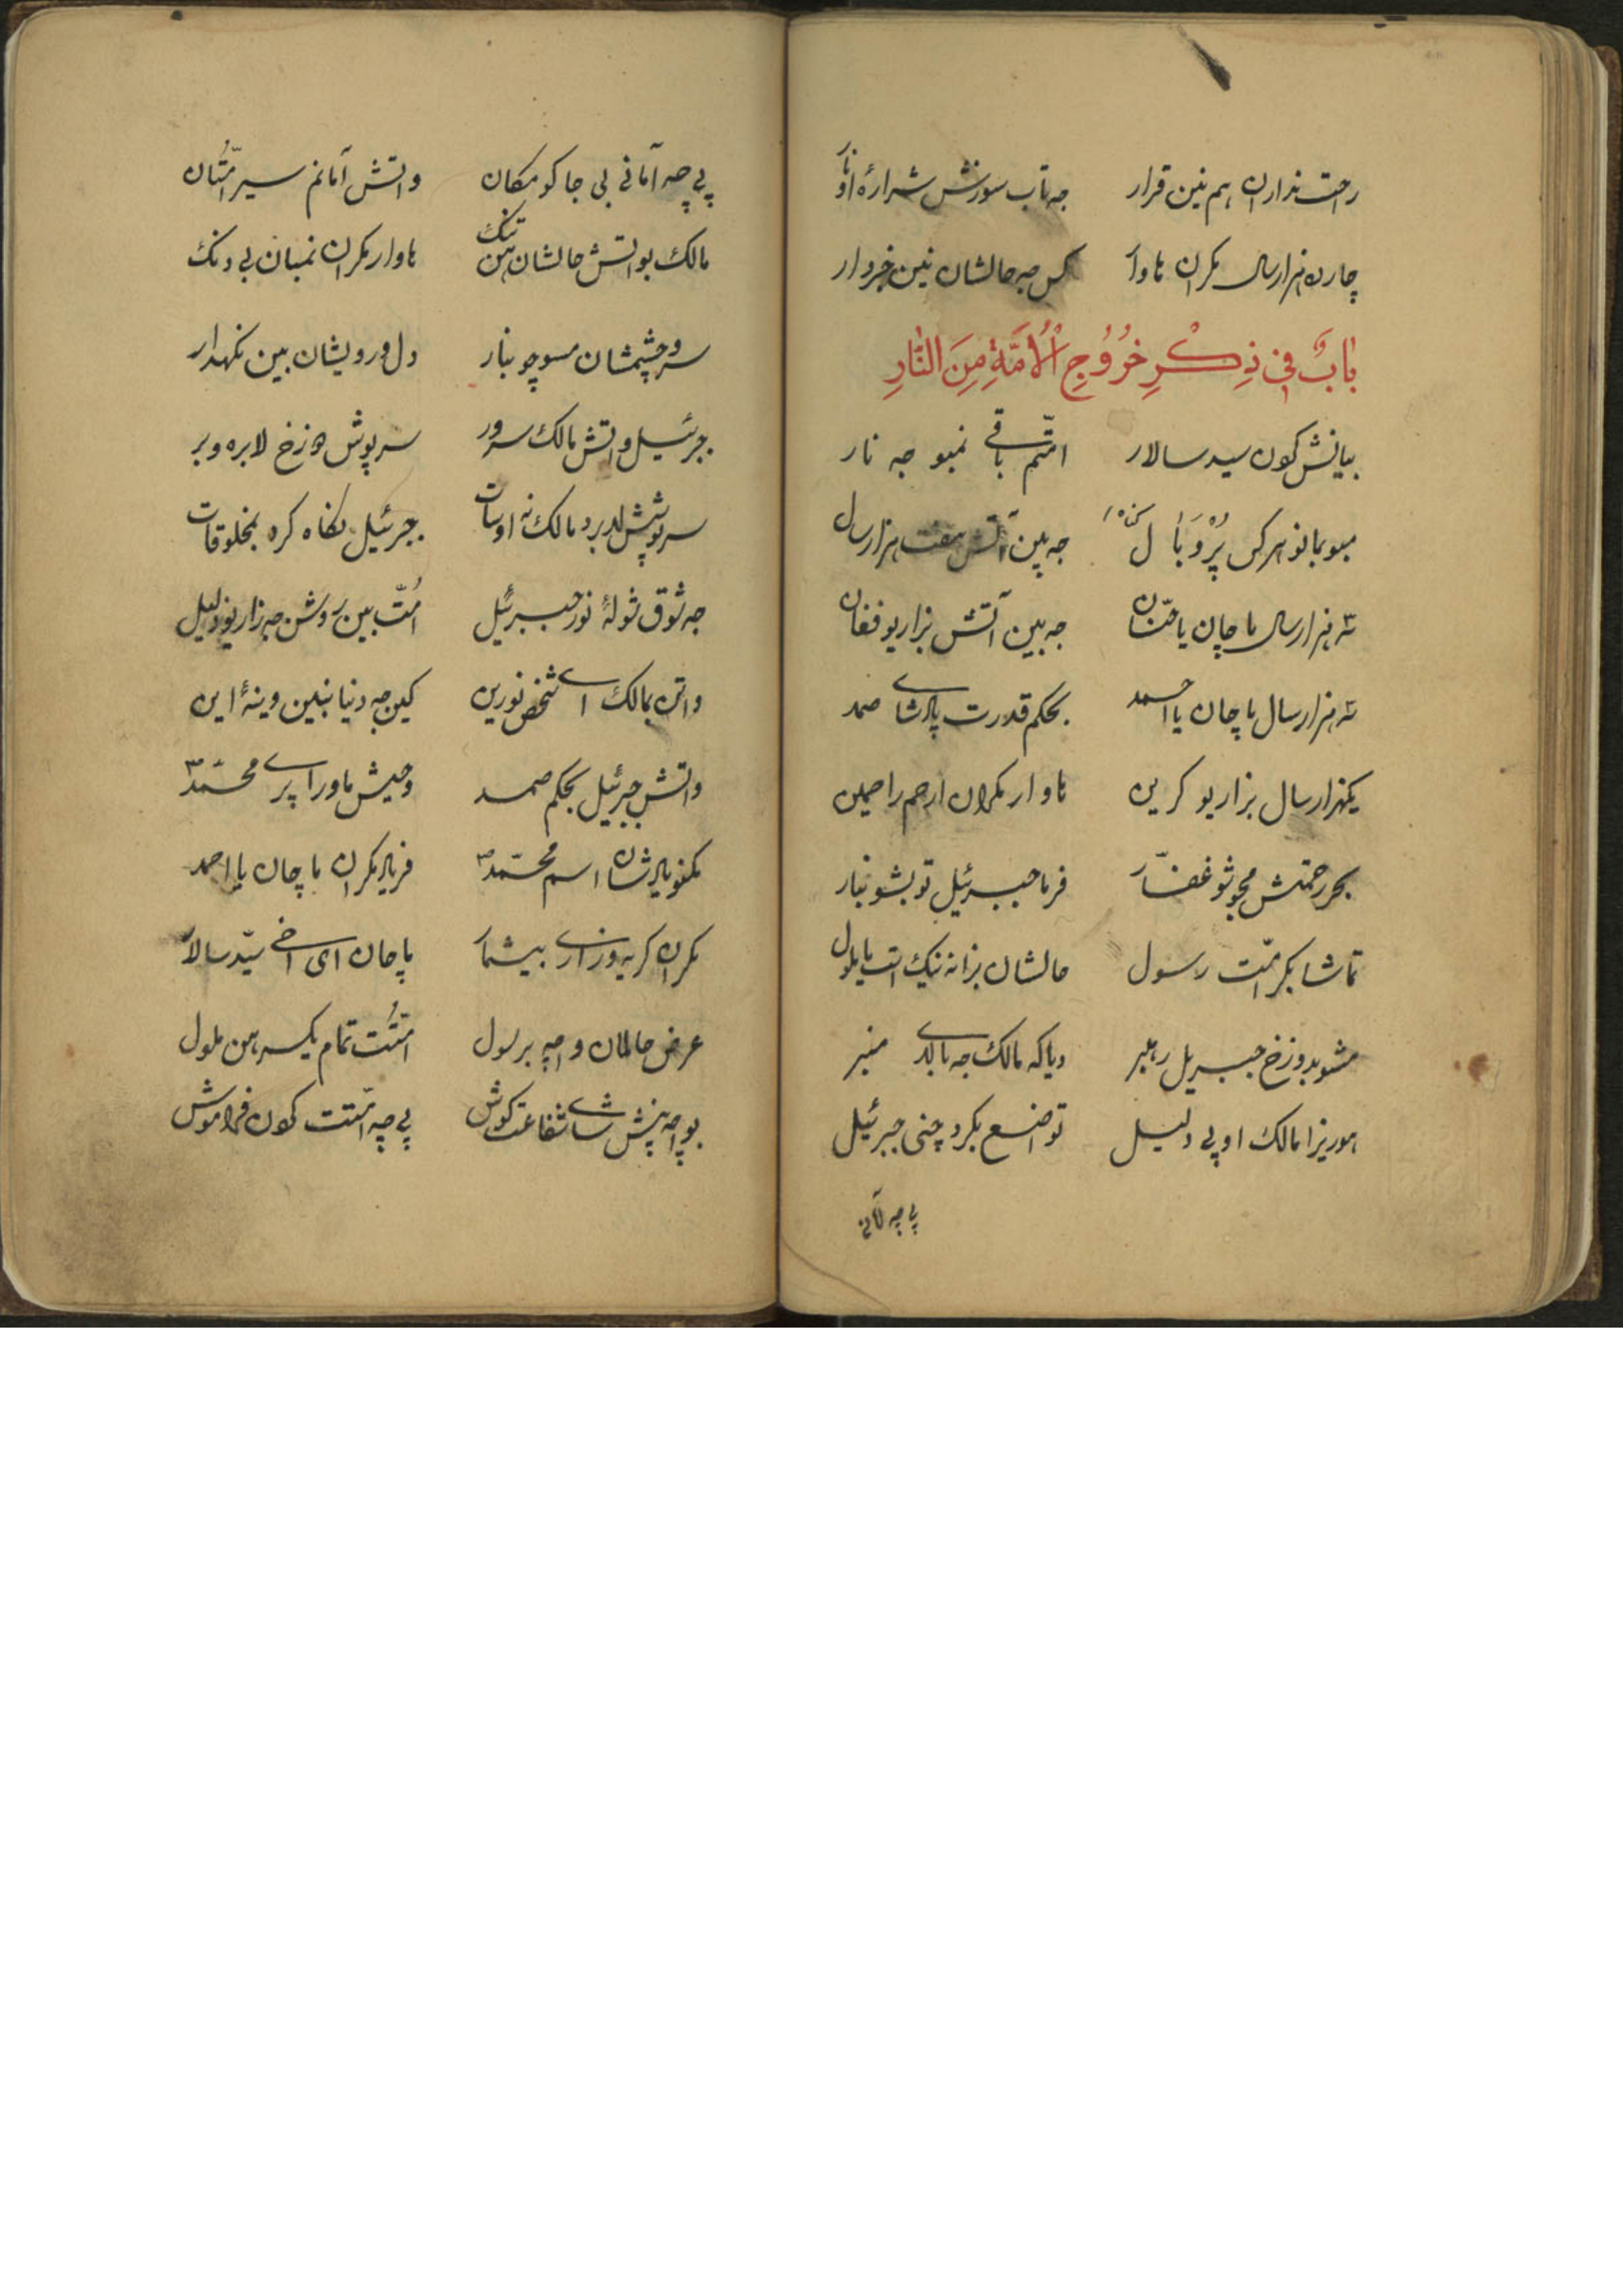 راحت ندارن هم نین قرار جه تاب سوزش شراره او نار
چارده هزار سال مکران هاوار کس جه حالشان نین خبردار
بَابٌ فِي ذِكْرِ خُرُوجِ الْأُمَّةِ مِنَ النَّارِ
بیانش کون سید سالار امتم باقی نمبو جه نار
مبو بمانو هرکس پر و بال جه بین آتش هفت هزار سال
سه هزار سال ماچان یا حنان جه بین آتش بزاریو فغان
سه هزار سال ماچان یا احمد بحکم قدرت پادشای صمد
یکهزار سال بزاریو کرین هاوار مکران ارحم راحمین
بحر رحمتش مجوشو غفار فرما جبرئیل تو بشو بنار
تماشا بکر امت رسول حالشان بزانه نیک است یا ملول
مشو بدوزخ جبریل رهبر دیا که مالک جه بالای منبر
هوریزا مالک او بی دلیل تواضع بکرد چنی جبرئیل
پی چه آمانی
پی چه آمانی بی جا کو مکان واتش آمانم سیر امتان
مالک بواتش حالشان هن تنک هاوار مکران نمبان بی دنک
سر و چشمشان مسوچو بنار دل و رویشان بین نکهدار
جبرئیل واتش مالک سرور سرپوش دوزخ لابره و بر
سرپوشش لابرد مالک نه اوسات جبرئیل نکاه کرد بمخلوقات
جه شوق شولهٔ نور جبرئیل امت بین روشن جه زاریو ذلیل
واتن بمالک ای شخص نورین کین جه دنیا نبین وینهٔ این
واتش جبرئیل بحکم صمد وحیش ماورا پری محمد
مکنو یادشان اسم محمد فریاد مکران ماچان یا احمد
مکران کریه و زاری بیشمار ماچان ای اخی سید سالار
عرض حالمان واچه برسول امتت تمام یکسر هن ملول
بواچه پیش شای شفاعت کوش پی چه امتت کردن فراموش